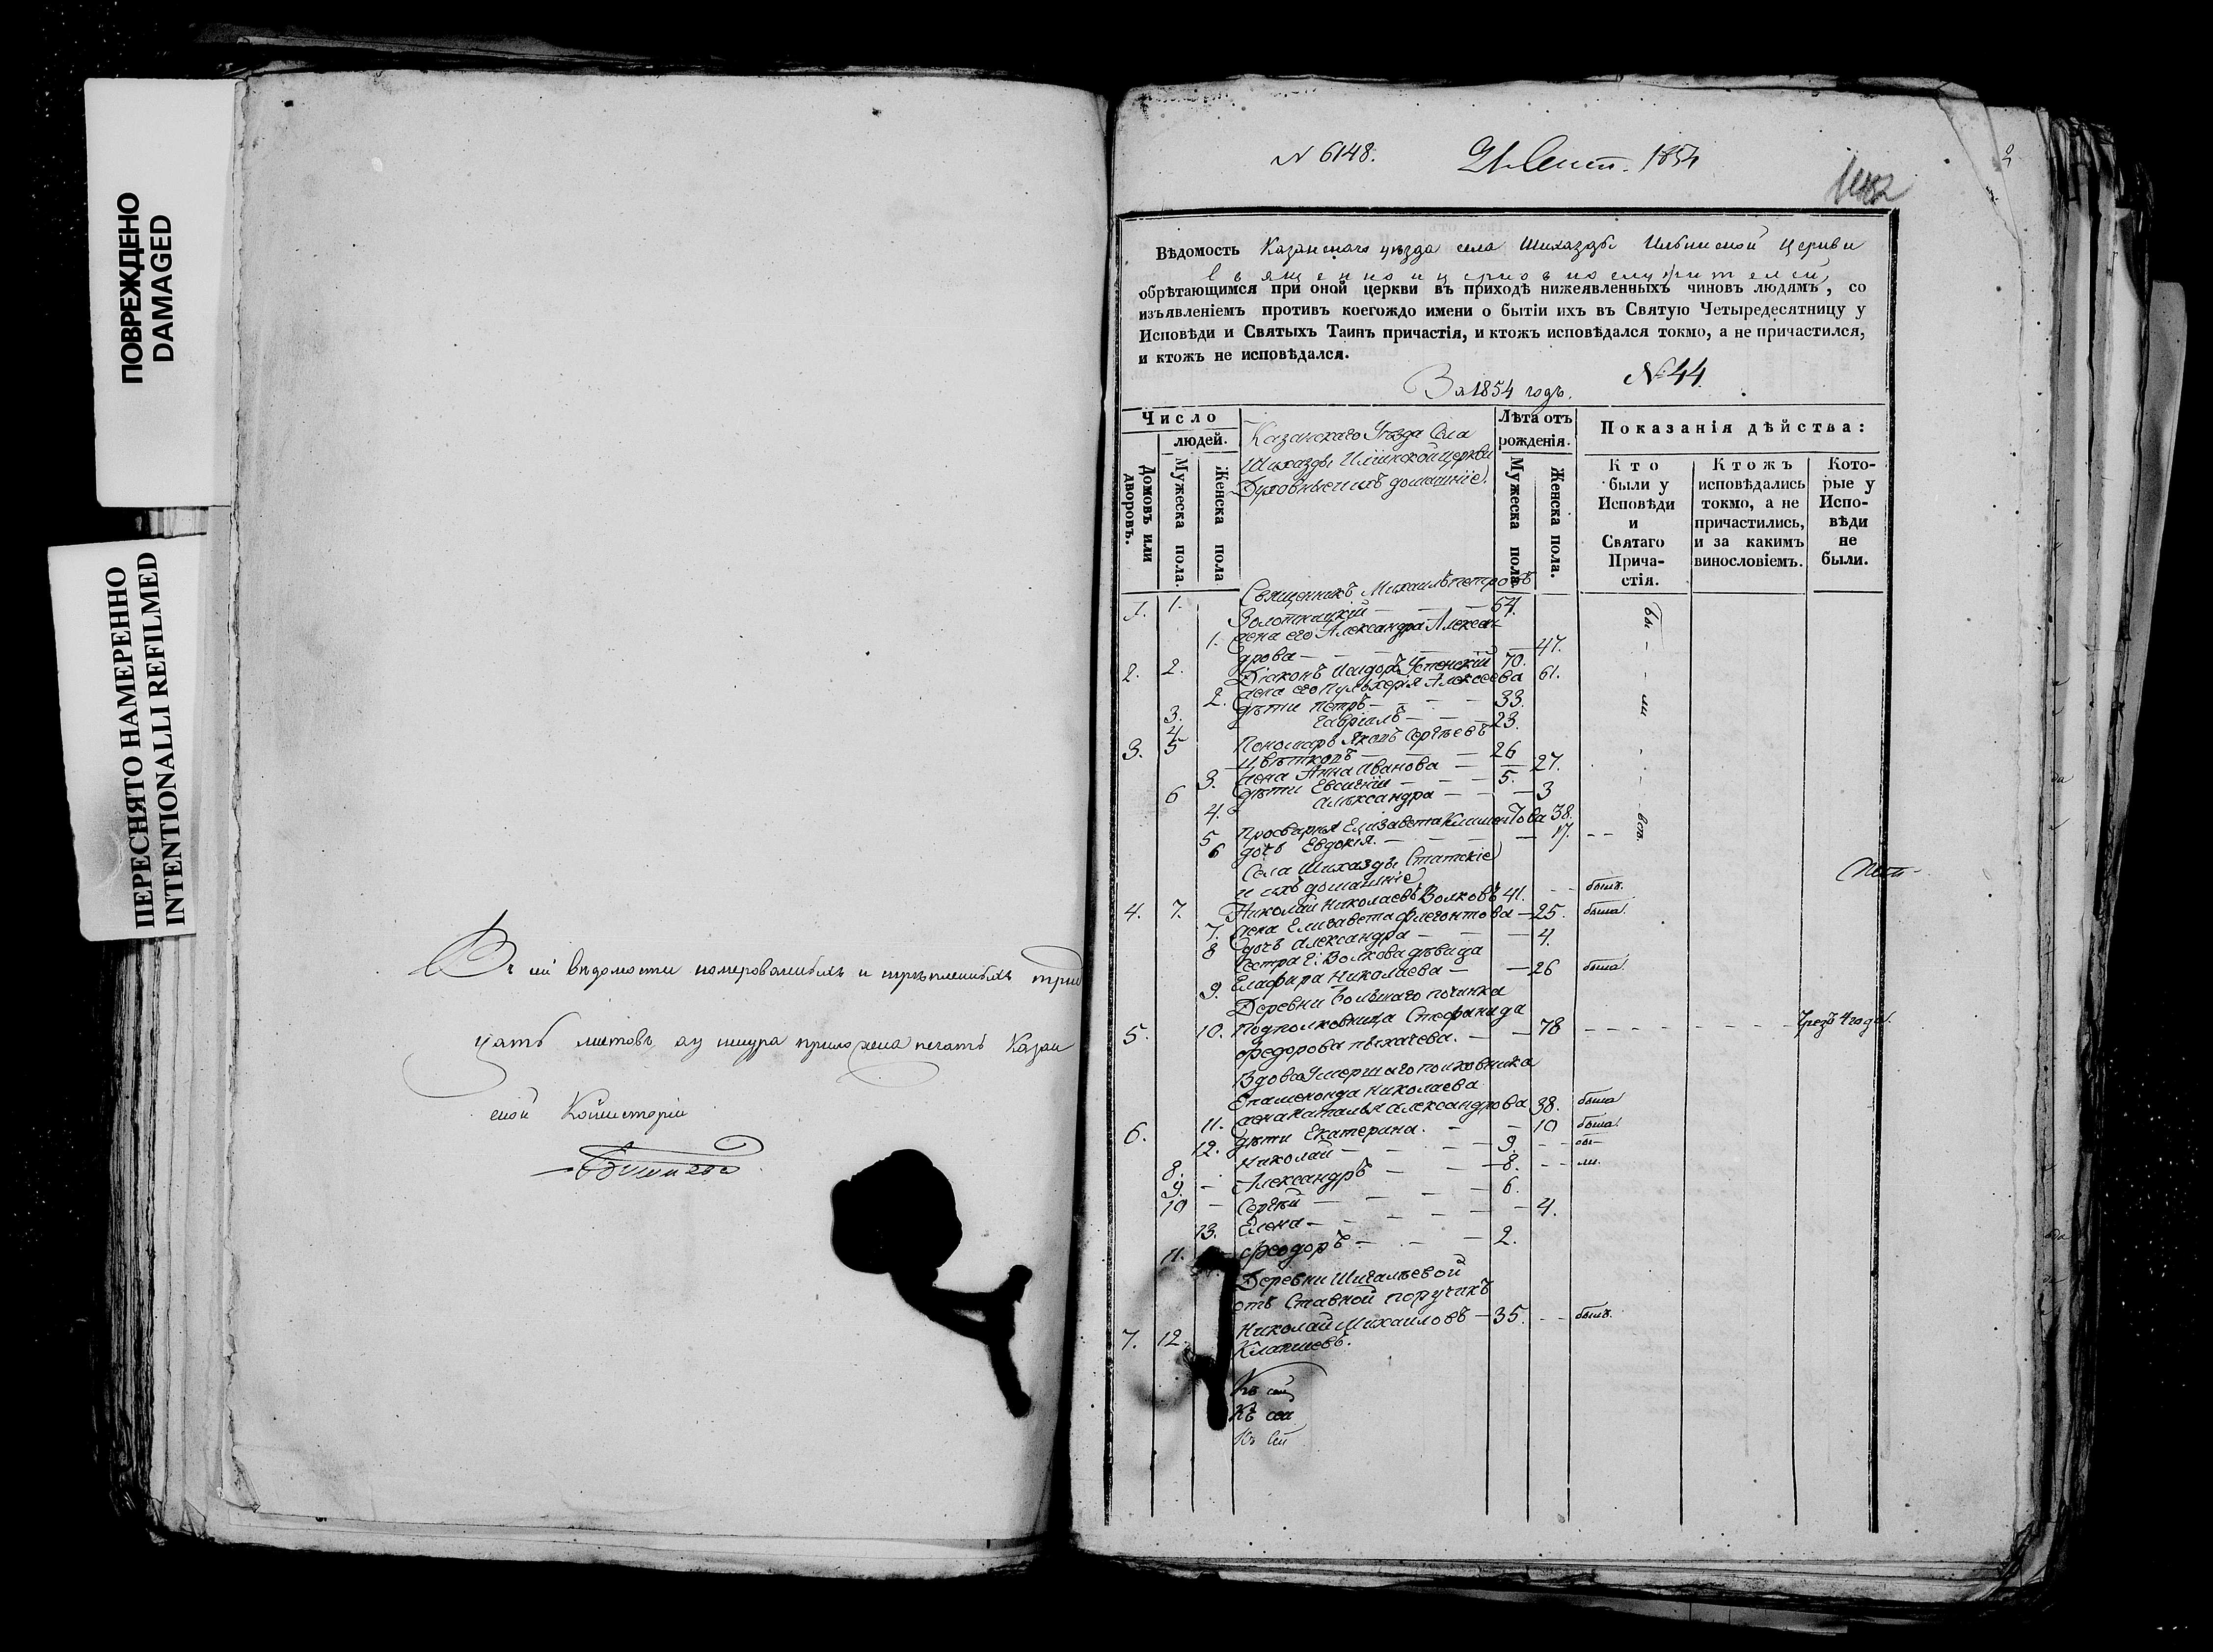 ПОВРЕЖДЕНО
DAMAGED
ПЕРЕСНЯТО НАМЕРЕННО
INTENTIONALLI REFILMED
Въ сей вѣдомости номерованныхъ и скрѣпленныхъ трид
цать листовъ, а у шнура приложена печать Казан
ской Консисторіи
N 6148. 21 Сент. 1854
2
Вѣдомость Казанскаго уѣзда села Шигазды Ильинской церкви
священно и церковно служителей,
обрѣтающимся при оной церкви въ приходѣ нижеявленныхъ чиновъ людямъ, со
изъявленіемъ противъ коегождо имени о бытіи ихъ въ Святую Четыредесятницу у
Исповѣди и Святыхъ Таинъ причастія, и ктожъ исповѣдался токмо, а не причастился,
и ктожъ не исповѣдался.
За 1854 годъ. №44
Число
людей.
Домовъ или дворовъ.
Мужеска пола.
Женска пола
Казанскаго Уѣзда Села
Шигазды Ильинской церкви
Духовные и ихъ домашніе.
Лѣта отъ рожденія.
Мужеска пола.
Женска пола.
Показанія дѣйства:
Кто были у Исповѣди и Святаго Прича-стія.
Ктожъ исповѣдались токмо, а не причастились, и за какимъ винословіемъ.
Кото-рые у Испо-вѣди не были.
1. 1. Священникъ Михаилъ Петровъ
Золотницкій — — — 54.
1. жена его Александра Алексан
дрова — — — 47.
2. 2. Діаконъ Исидоръ Успенскій 70.
2. жена его Пульхерія Алексеева 61.
3. дѣти Петръ — — — 33.
4. Гавріилъ — — — 23.
3. 5 Пономарь Яковъ Сергѣевъ
Цвѣтковъ — — — 26
3. жена Анна Иванова — — 27.
6 дѣти Евгеній — — — 5.
4. Александра — — — 3
5 Просвирня Елизавета Климентова 38.
6 дочь Евдокія. — — — 17. — —
бы - - ли - - всѣ
Села Шигазды Статскіе
и ихъ домашніе
4. 7. Николай Николаевъ Волковъ 41. — — былъ.
7. жена Елизавета Флегонтова — 25. была.
8 дочь Александра — — — 4.
Сестра Г: Волкова дѣвица
9. Глафира Николаева — — 26 была.
Деревни Большаго починка
5. 10. Подполковница Стефанида
Федорова Пыхачева. — — 78 — — — чрезъ 4 года.
Вдова Умершаго полковника
Епаменонда Николаева
6. 11. жена Наталья Александрова 38. была
12. дѣти Екатерина. — — 10 была.
8. Николай — — — 9. — — бы—
9. — Александръ — — — 8. — — ли.
10 — Сергѣй — — — 6.
13. Елена — — — 4.
11. Феодоръ — — — 2.
Деревни Шигалеевой
отъ Ставной поручикъ
7. 12. Николай Михаиловъ — 35. — — былъ.
Къ сей
Къ сей
Къ сей